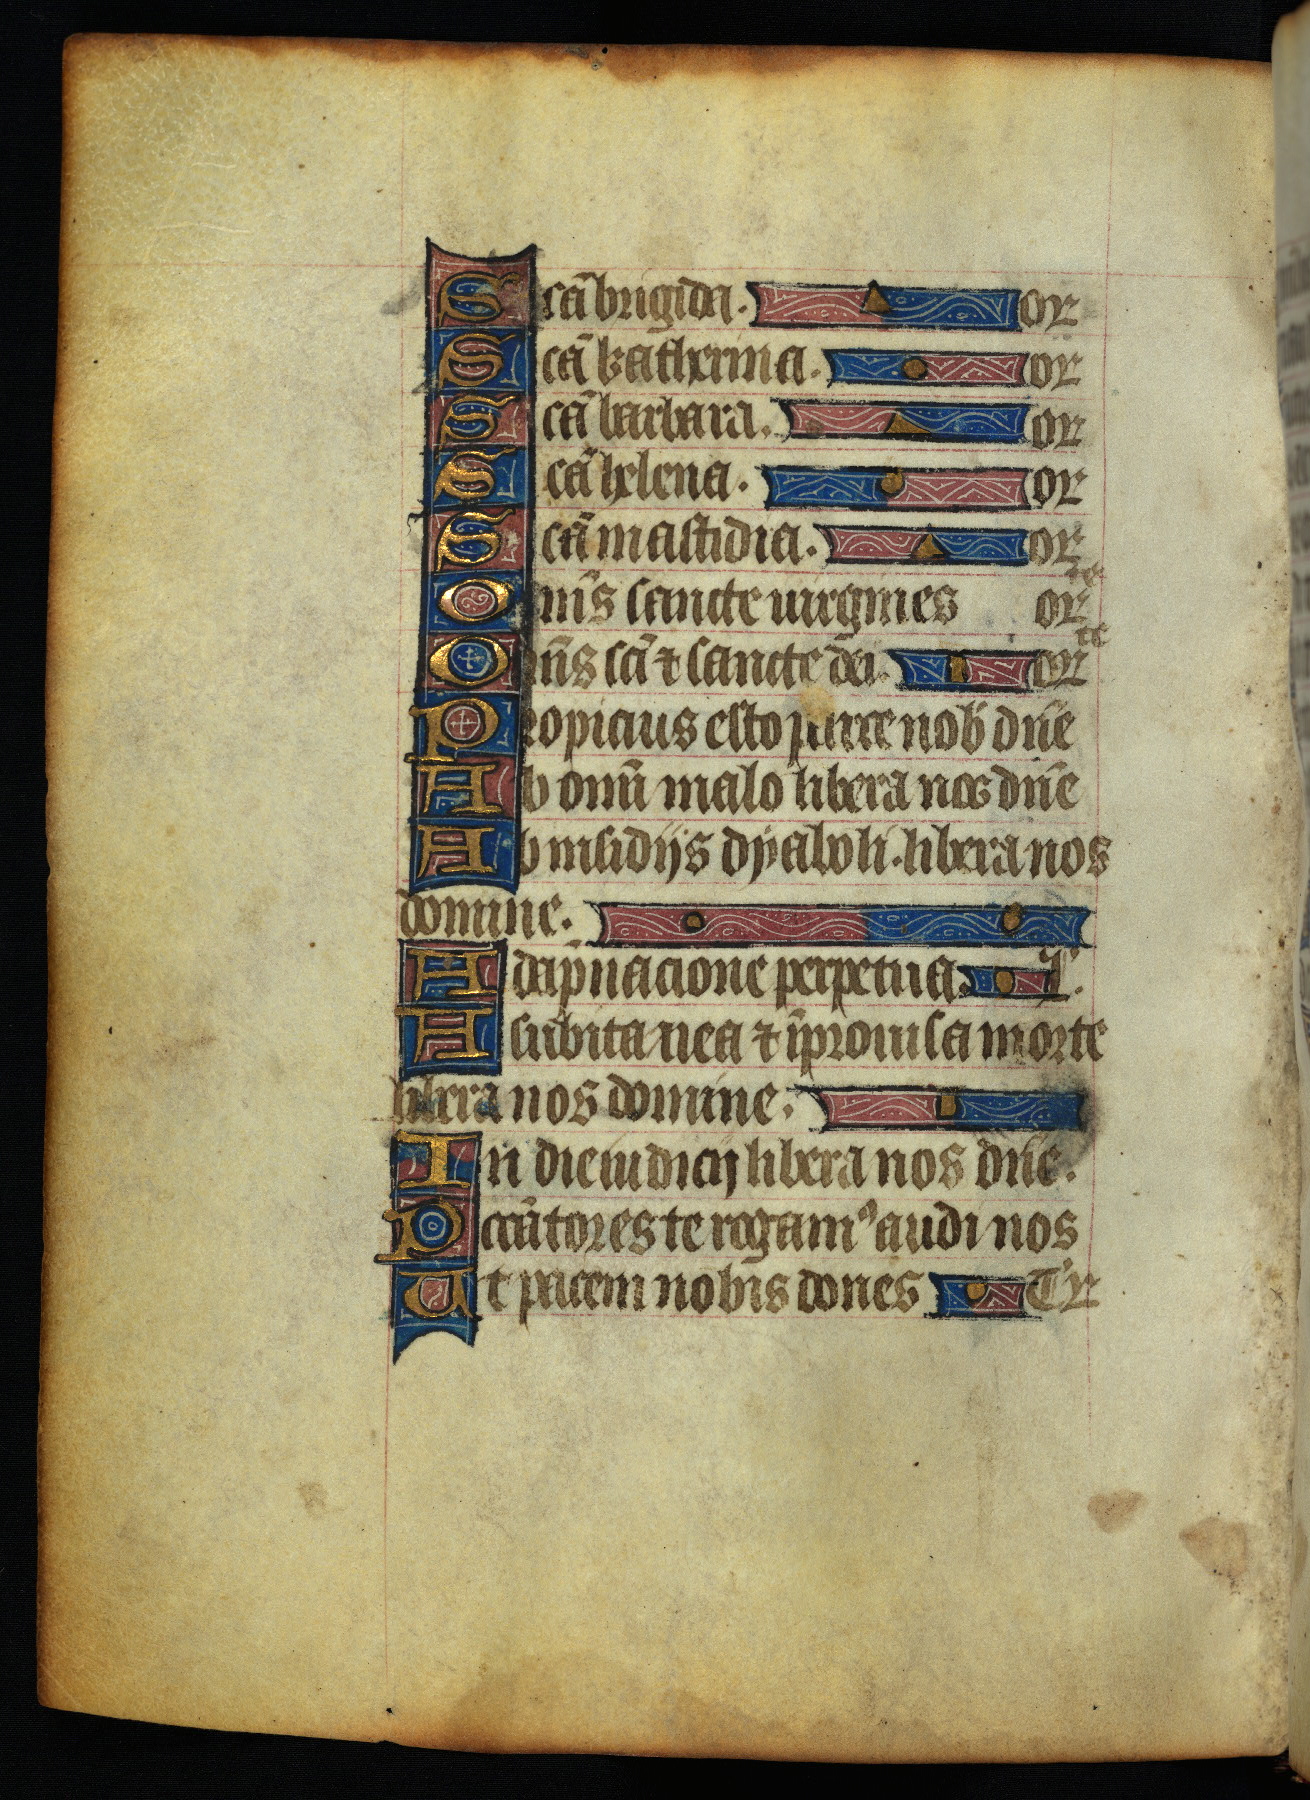 Scā brigida. or
Scā katherina. or
Scā barbara. or
Scā helena. or
Scā mastidia. or
Om̄s sancte uirgines orte
Om̄s sc̄i ⁊ sancte dei. orte
Propicius esto parce nob̄ dn̄e
Ab omī malo libera nos dn̄e
Ab insidijs dyaboli. libera nos
domine.
A dāpnacione perpetua. l'.
A subitanea ⁊ īprouisa morte
libera nos domine.
In die iudicij libera nos dn̄e.
Peccātores te rogamꝰ audi nos
Ut pacem nobis dones Tr